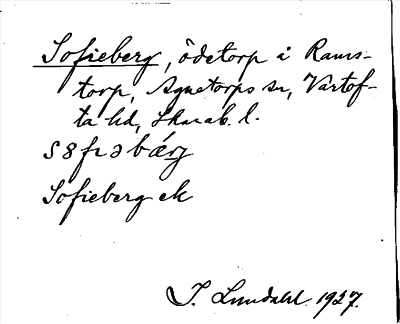 Sofieberg, ödetorp i Rams-
torp, Agnetorps sn, Vartof-
ta hd, Skarab. l.
Sofieberg ek
I. Lundahl. 1927.